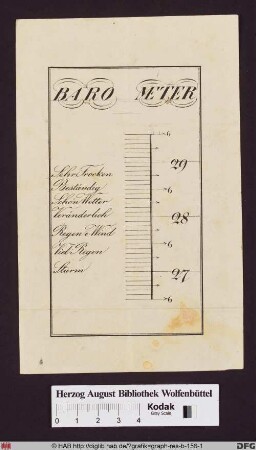 BARO METER
6
29
Sehr Trocken
Beständig
6
Schön Wetter
Veränderlich
28
Regen o Wind
6
Viel Regen
Sturm
27
6
Herzog August Bibliothek Wolfenbüttel
0 1 2 3 4
Kodak
Gray Scale
© HAB http://diglib.hab.de/?grafik=graph-res-b-156-1
DFG